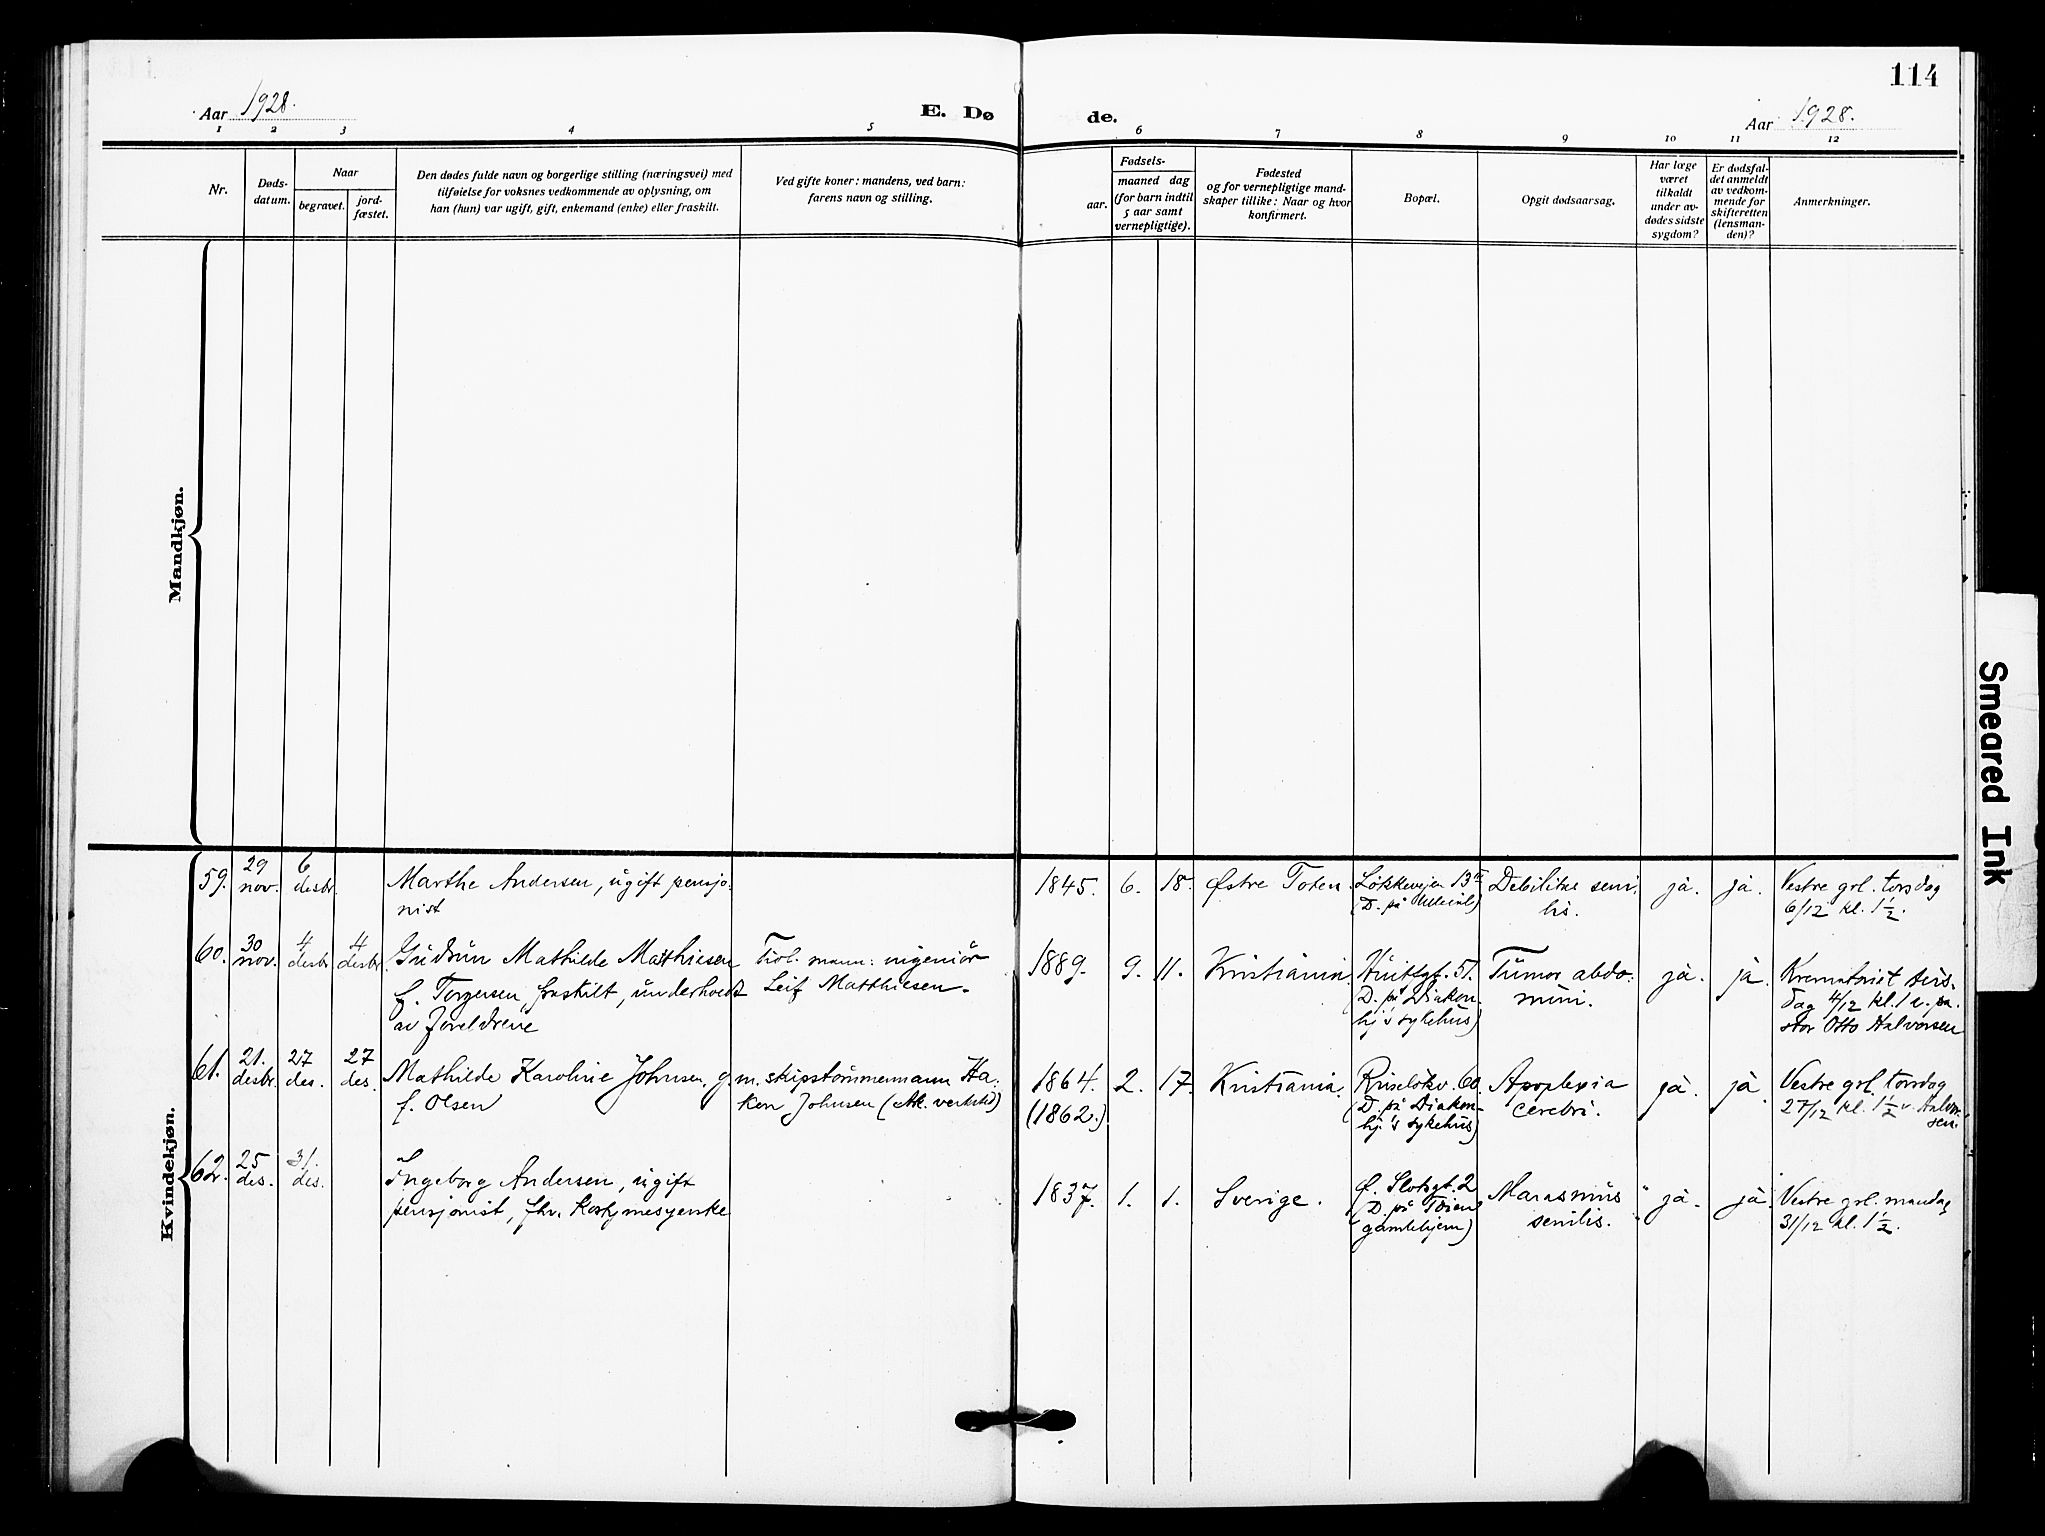 114
Aar 1928.
E. Dø
de.
Aar 1928.
1 2 3 4 5 6 7 8 9 10 11 12
Nr.
Døds-
datum.
Naar
begravet.
jord-
fæstet.
Den dødes fulde navn og borgerlige stilling (næringsvei) med
tilføielse for voksnes vedkommende av oplysning, om
han (hun) var ugift, gift, enkemand (enke) eller fraskilt.
Ved gifte koner: mandens, ved barn:
farens navn og stilling.
Fødsels-
aar.
maaned dag
(for barn indtil
5 aar samt
vernepligtige).
Fødested
og for vernepligtige mand-
skaper tillike: Naar og hvor
konfirmert.
Bopæl.
Opgit dødsaarsag.
Har læge
været
tilkaldt
under av-
dødes sidste
sygdom?
Er dødsfal-
det anmeldt
av vedkom-
mende for
skifteretten
(lensman-
den)?
Anmerkninger.
Mandkjøn.
Kvindekjøn.
59.
29
nov.
6
desbr.
Marthe Andersen, ugift pensjo-
nist
1845. 6. 18. Østre Toten.
Løkkeveien 13
(D. på Ullevål)
Debilitas seni-
lis.
ja. ja.
Vestre grl. torsdag
6/12 kl. 1 1/2.
60.
30
nov.
4
desbr
4
desbr.
Gudrun Mathilde Matthiesen
f. Torgersen fraskilt, underholdt
av foreldrene
Fhv. mann: ingeniør
Leif Matthiesen.
1889. 9. 11. Kristiania.
Huitfgt. 51.
(D. på Diakon-
hj's sykehus)
Tumor abdo-
mini.
ja. ja.
Krematoriet tirs-
dag 4/12 kl. 1 v. pa-
stor Otto Halvorsen
61.
21.
desbr.
27
des.
27
des.
Mathilde Karoline Johnsen, g.
f. Olsen
m. skipstømmermann Ha-
ken Johnsen (Ak. verksted)
1864. 2. 17. Kristiania.
(1862.)
Ruseløkv. 60
(D. på Diakon-
hj's sykehus)
Apoplexia
cerebri.
ja. ja.
Vestre grl. torsdag
27/12 kl. 1 1/2 v. Halvor-
sen.
62.
25
des.
31.
des.
Ingeborg Andersen, ugift
pensjonist, fhv. kostymesyerske
1837. 1. 1. Sverige.
Ø. Slotsgt. 2
(D. på Tøien
gamlehjem)
Marasmus
senilis.
ja. ja
Vestre grl. mandag
31/12 kl. 1 1/2.
Smeared Ink